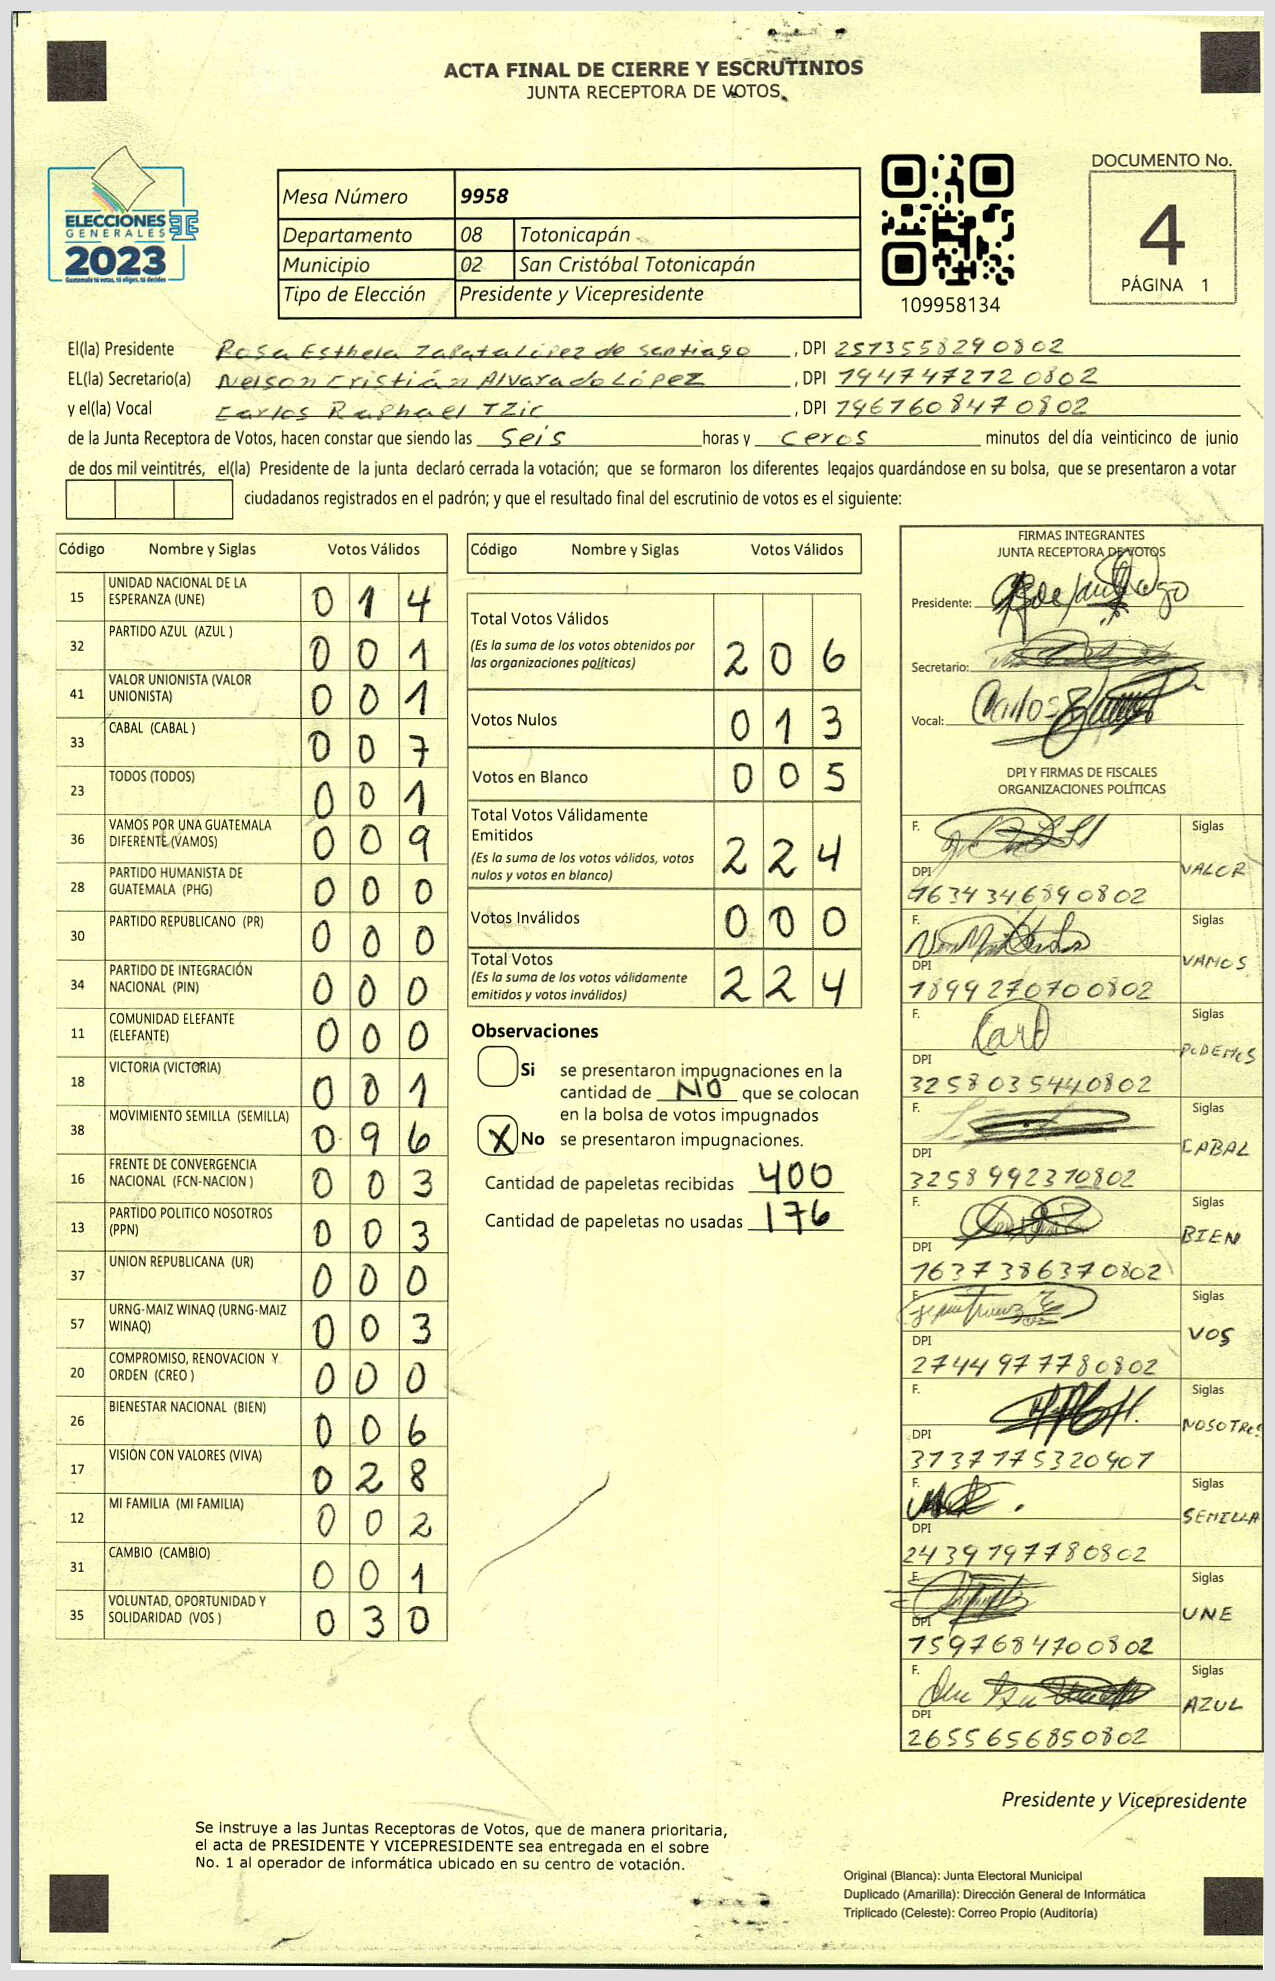 ACTA FINAL DE CIERRE Y ESCRUTINIOS
JUNTA RECEPTORA DE VOTOS
ELECCIONES
GENERALES
2023
Guatemala tú votas, tú eliges, tú decides
Mesa Número 9958
Departamento 08 Totonicapán
Municipio 02 San Cristóbal Totonicapán
Tipo de Elección Presidente y Vicepresidente
109958134
DOCUMENTO No.
4
PÁGINA 1
El(la) Presidente Rosa Esthela Zapata López de Santiago, DPI 2573558290802
EL(la) Secretario(a) Nelson Cristián Alvarado López, DPI 1947472720802
y el(la) Vocal Carlos Raphael Tzic, DPI 1961608470802
de la Junta Receptora de Votos, hacen constar que siendo las Seis horas y Ceros minutos del día veinticinco de junio
de dos mil veintitrés, el(la) Presidente de la junta declaró cerrada la votación; que se formaron los diferentes legajos guardándose en su bolsa, que se presentaron a votar
ciudadanos registrados en el padrón; y que el resultado final del escrutinio de votos es el siguiente:
Código Nombre y Siglas Votos Válidos
15 UNIDAD NACIONAL DE LA ESPERANZA (UNE) 0 1 4
32 PARTIDO AZUL (AZUL ) 0 0 1
41 VALOR UNIONISTA (VALOR UNIONISTA) 0 0 1
33 CABAL (CABAL ) 0 0 7
23 TODOS (TODOS) 0 0 1
36 VAMOS POR UNA GUATEMALA DIFERENTE (VAMOS) 0 0 9
28 PARTIDO HUMANISTA DE GUATEMALA (PHG) 0 0 0
30 PARTIDO REPUBLICANO (PR) 0 0 0
34 PARTIDO DE INTEGRACIÓN NACIONAL (PIN) 0 0 0
11 COMUNIDAD ELEFANTE (ELEFANTE) 0 0 0
18 VICTORIA (VICTORIA) 0 0 1
38 MOVIMIENTO SEMILLA (SEMILLA) 0 9 6
16 FRENTE DE CONVERGENCIA NACIONAL (FCN-NACION ) 0 0 3
13 PARTIDO POLITICO NOSOTROS (PPN) 0 0 3
37 UNION REPUBLICANA (UR) 0 0 0
57 URNG-MAIZ WINAQ (URNG-MAIZ WINAQ) 0 0 3
20 COMPROMISO, RENOVACION Y ORDEN (CREO ) 0 0 0
26 BIENESTAR NACIONAL (BIEN) 0 0 6
17 VISIÓN CON VALORES (VIVA) 0 2 8
12 MI FAMILIA (MI FAMILIA) 0 0 2
31 CAMBIO (CAMBIO) 0 0 1
35 VOLUNTAD, OPORTUNIDAD Y SOLIDARIDAD (VOS ) 0 3 0
Código Nombre y Siglas Votos Válidos
Total Votos Válidos
(Es la suma de los votos obtenidos por
las organizaciones políticas) 2 0 6
Votos Nulos 0 1 3
Votos en Blanco 0 0 5
Total Votos Válidamente
Emitidos
(Es la suma de los votos válidos, votos
nulos y votos en blanco) 2 2 4
Votos Inválidos 0 0 0
Total Votos
(Es la suma de los votos válidamente
emitidos y votos inválidos) 2 2 4
Observaciones
Si se presentaron impugnaciones en la
cantidad de NO que se colocan
en la bolsa de votos impugnados
X No se presentaron impugnaciones.
Cantidad de papeletas recibidas 400
Cantidad de papeletas no usadas 176
FIRMAS INTEGRANTES
JUNTA RECEPTORA DE VOTOS
Presidente:
Secretario:
Vocal:
DPI Y FIRMAS DE FISCALES
ORGANIZACIONES POLÍTICAS
F. Siglas
VALOR
DPI
1634346890802
F. Siglas
VAMOS
DPI
1899270700802
F. Siglas
PODEMOS
DPI
3258035440802
F. Siglas
CABAL
DPI
3258992370802
F. Siglas
BIEN
DPI
1637386370802
F. Siglas
VOS
DPI
2744977780802
F. Siglas
NOSOTROS
DPI
3737775320901
F. Siglas
SEMILLA
DPI
2439797780802
F. Siglas
UNE
DPI
1597684700802
F. Siglas
AZUL
DPI
2655656850802
Presidente y Vicepresidente
Se instruye a las Juntas Receptoras de Votos, que de manera prioritaria,
el acta de PRESIDENTE Y VICEPRESIDENTE sea entregada en el sobre
No. 1 al operador de informática ubicado en su centro de votación.
Original (Blanca): Junta Electoral Municipal
Duplicado (Amarilla): Dirección General de Informática
Triplicado (Celeste): Correo Propio (Auditoría)